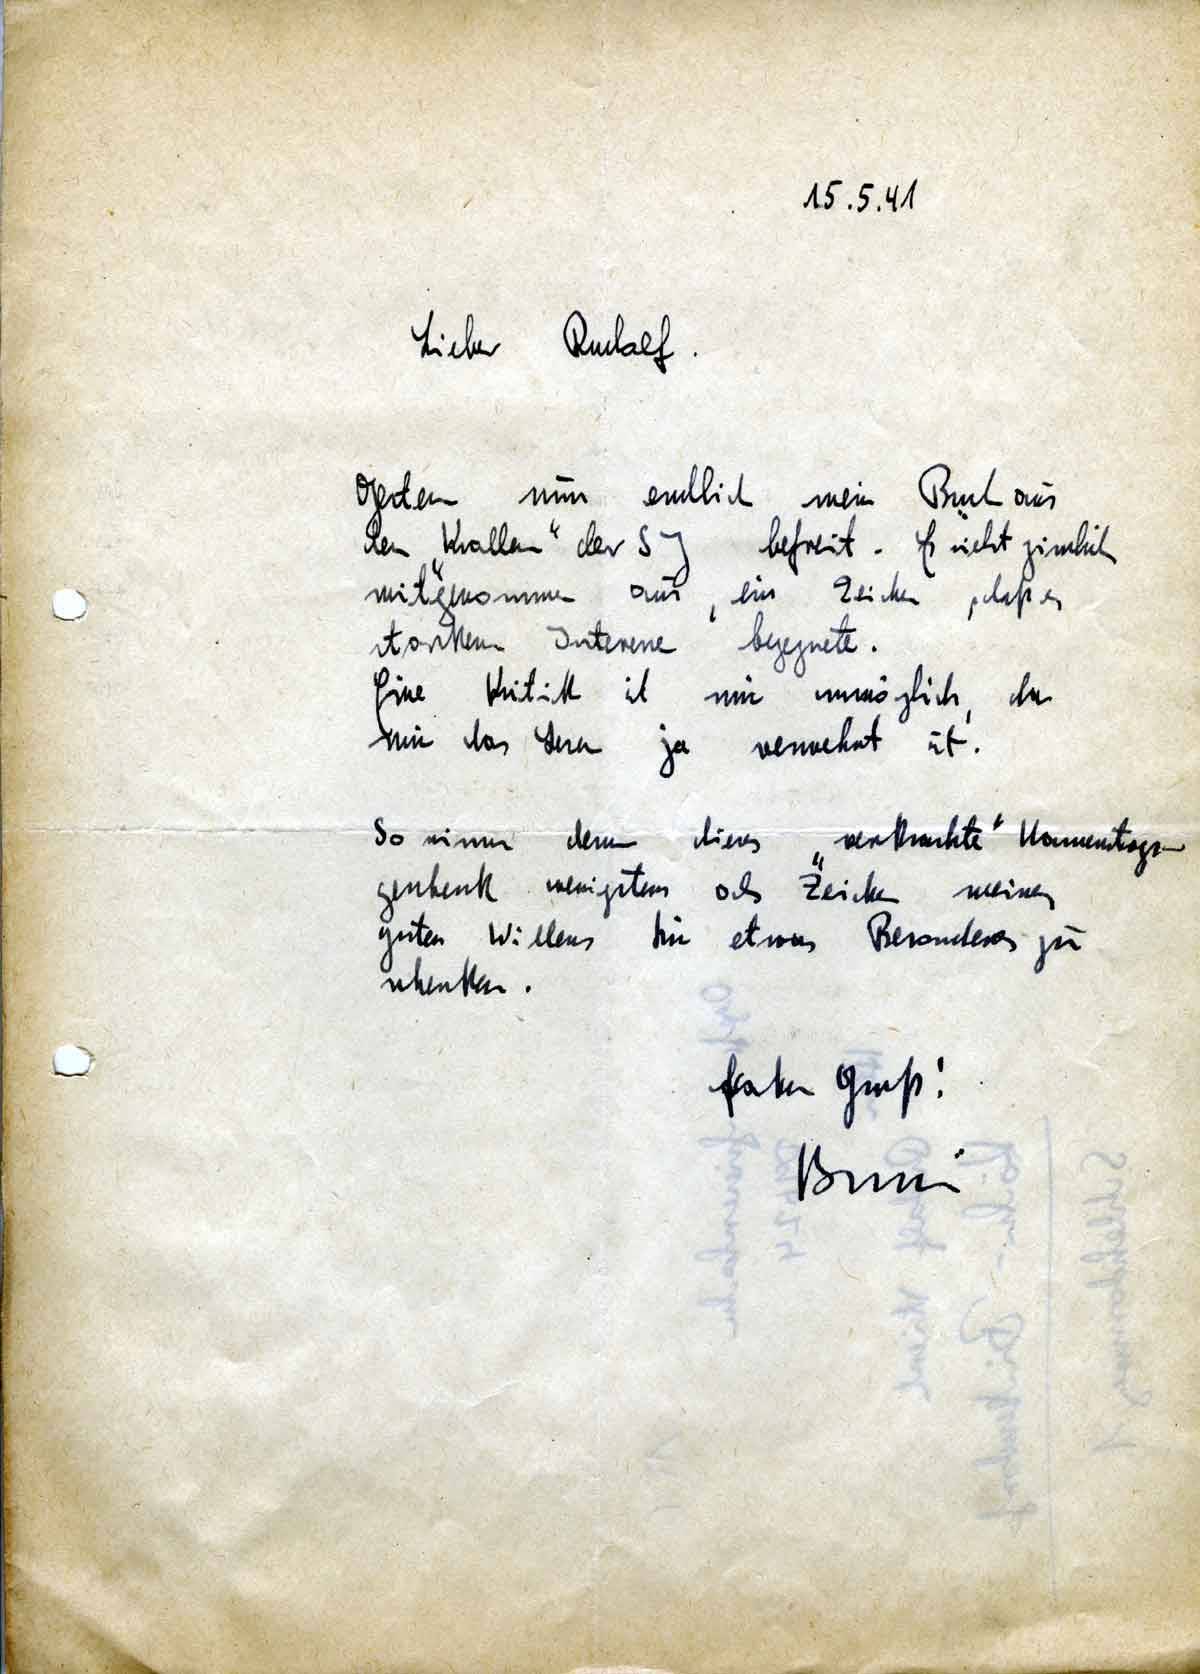 15.5.41
Lieber Rudolf.
Gestern nun endlich mein Buch aus
den „Krallen“ der SJ befreit. Es sieht ziemlich
mitgenommen aus, ein Zeichen, daß es
starkem Interesse begegnete.
Eine Kritik ist mir unmöglich, da
mir das Lesen ja verwehrt ist.
So nimm denn dieses „verkrachte“ Namenstags-
geschenk wenigstens als Zeichen meines
guten Willens Dir etwas Besonderes zu
schenken.
Gruß!
Rudolf